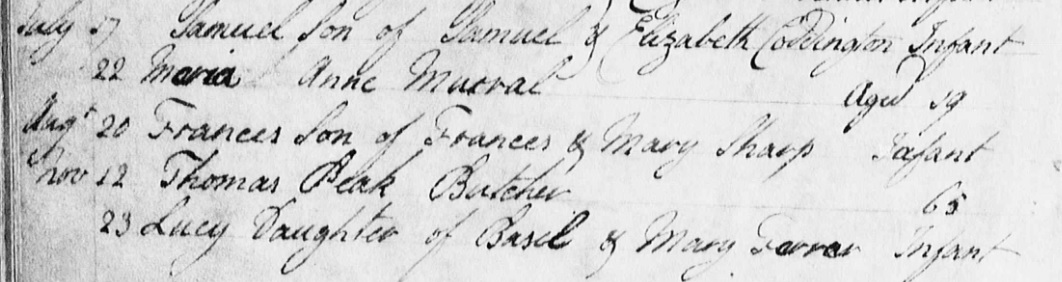 July 17 Samuel Son of Samuel & Elizabeth Coddington Infant
22 Maria Anne Aged 19
Augt 20 Frances Son of Frances & Mary Sharp Infant
Nov 12 Thomas Peak Butcher 65
23 Lucy Daughter of Basil & Mary Farrer Infant